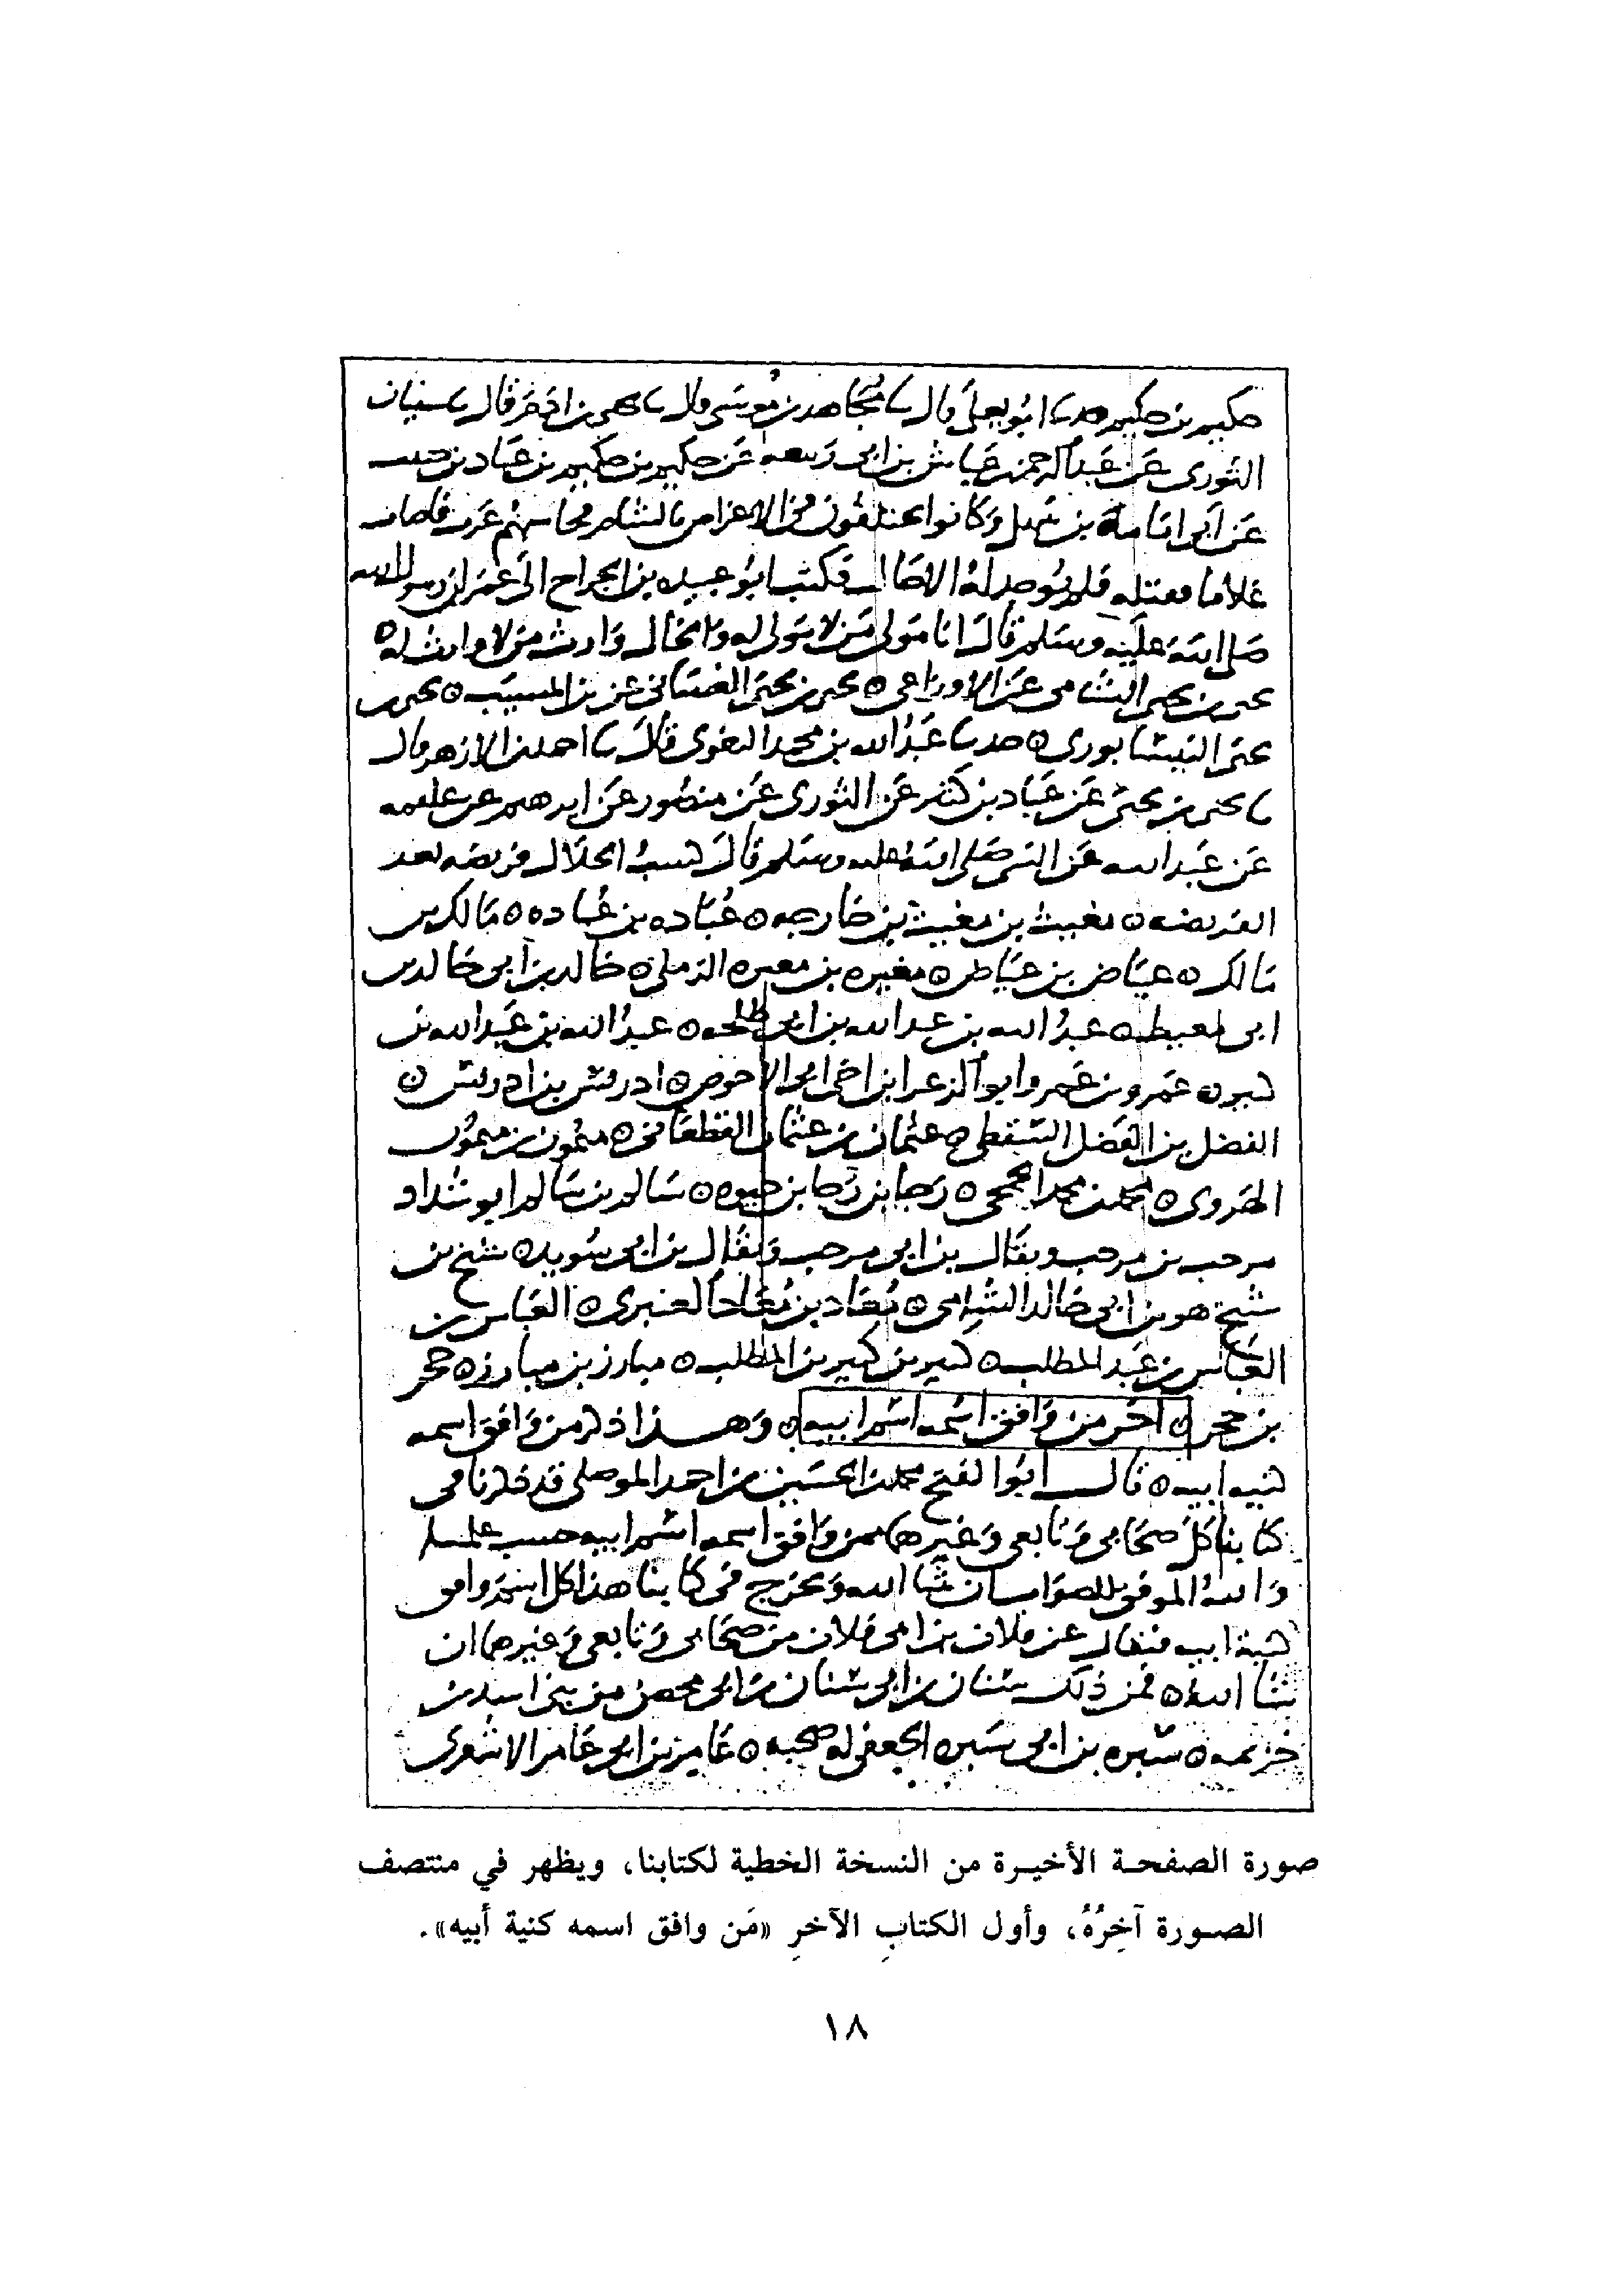 حكيم بن حكيم حدثنا ابو يعلى قال ثنا مجاهد بن موسى قال ثنا يحيى بن ادم قال ثنا سفيان
الثوري عن عبد الرحمن بن عياش بن ابى ربيعه عن حكيم بن حكيم بن عباد بن حنيف
عن ابى امامة بن سهل وكانوا يختلفون الاعراض بالشام فجا سهم غرب فاصاب
غلاما فقتله فلم يوجد له الا خال فكتب ابو عبيده بن الجراح الى عمر ان رسول الله
صلى الله عليه وسلم قال انا مولى من لا مولى له والخال وارث من لا وارث له ه
يحيى بن يحيى الشامى عن الاوزاعى ه يحيى بن يحيى الغسانى عن بن المسيب ه يحيى بن
يحيى النيسابورى ه حدثنا عبد الله بن محمد البغوى قال ثنا احمد بن الازهر قال
ثنا يحيى بن يحيى عن عباد بن كثير عن الثورى عن منصور عن ابرهيم عن علقمه
عن عبد الله عن النبى صلى الله عليه وسلم قال كسب الحلال فريضه بعد
الفريضه ه مغيث بن مغيث بن خارجه ه عباده بن عباده ه مالك بن
مالك ه عياض بن عياض ه مغيره بن مغيره الرملى ه خالد بن ابى خالد بن
ابى معيط ه عبد الله بن عبد الله بن ابى طلحه ه عبد الله بن عبد الله بن
عمرو بن عمرو ابو الزعرا ابن اخى ابى الاحوص ه ادريس بن ادريس ه
الفضل بن الفضل السقطى ه عثمان بن عثمان الغطفانى ه ميمون بن ميمون
الهروى ه محمد بن محمد الجمحى ه رجا بن رجا بن حيوه ه سالم بن سالم ابو شداد
مرحب بن مرحب ويقال بن ابى مرحب ويقال بن ابى سويد ه شيخ بن
شيخ هو بن ابى خالد الشامى ه معاذ بن معاذ العنبرى ه العباس بن
العباس بن عبد المطلب ه كبير بن كبير بن المطلب ه مبارز بن مبارز ه حجر
بن حجر ه اخر من وافق اسمه اسم ابيه ه وهذا ذكر من وافق اسمه
كنيه ابيه ه قال ابو الفتح محمد بن الحسين بن احمد الموصلى قد ذكرنا فى
كتابنا كل صحابى وتابعى وغيرهما ممن وافق اسمه اسم ابيه حسب علمنا
والله الموفق للصواب ان شا الله ونخرج فى كتابنا هذا كل اسم وافق
كنية ابيه فيقال عن فلان بن ابى فلان من صحابى وتابعى وغيرهما ان
شا الله ه فمن ذلك سنان بن ابى سنان بن ابى محصن من بنى اسد بن
خزيمه ه سبره بن ابى سبره الجعفى له صحبه ه عامر بن ابى عامر الاشعرى
صورة الصفحة الأخيرة من النسخة الخطية لكتابنا، ويظهر في منتصف
الصورة آخِرُهُ، وأول الكتابِ الآخرِ «مَن وافق اسمه كنية أبيه».
١٨